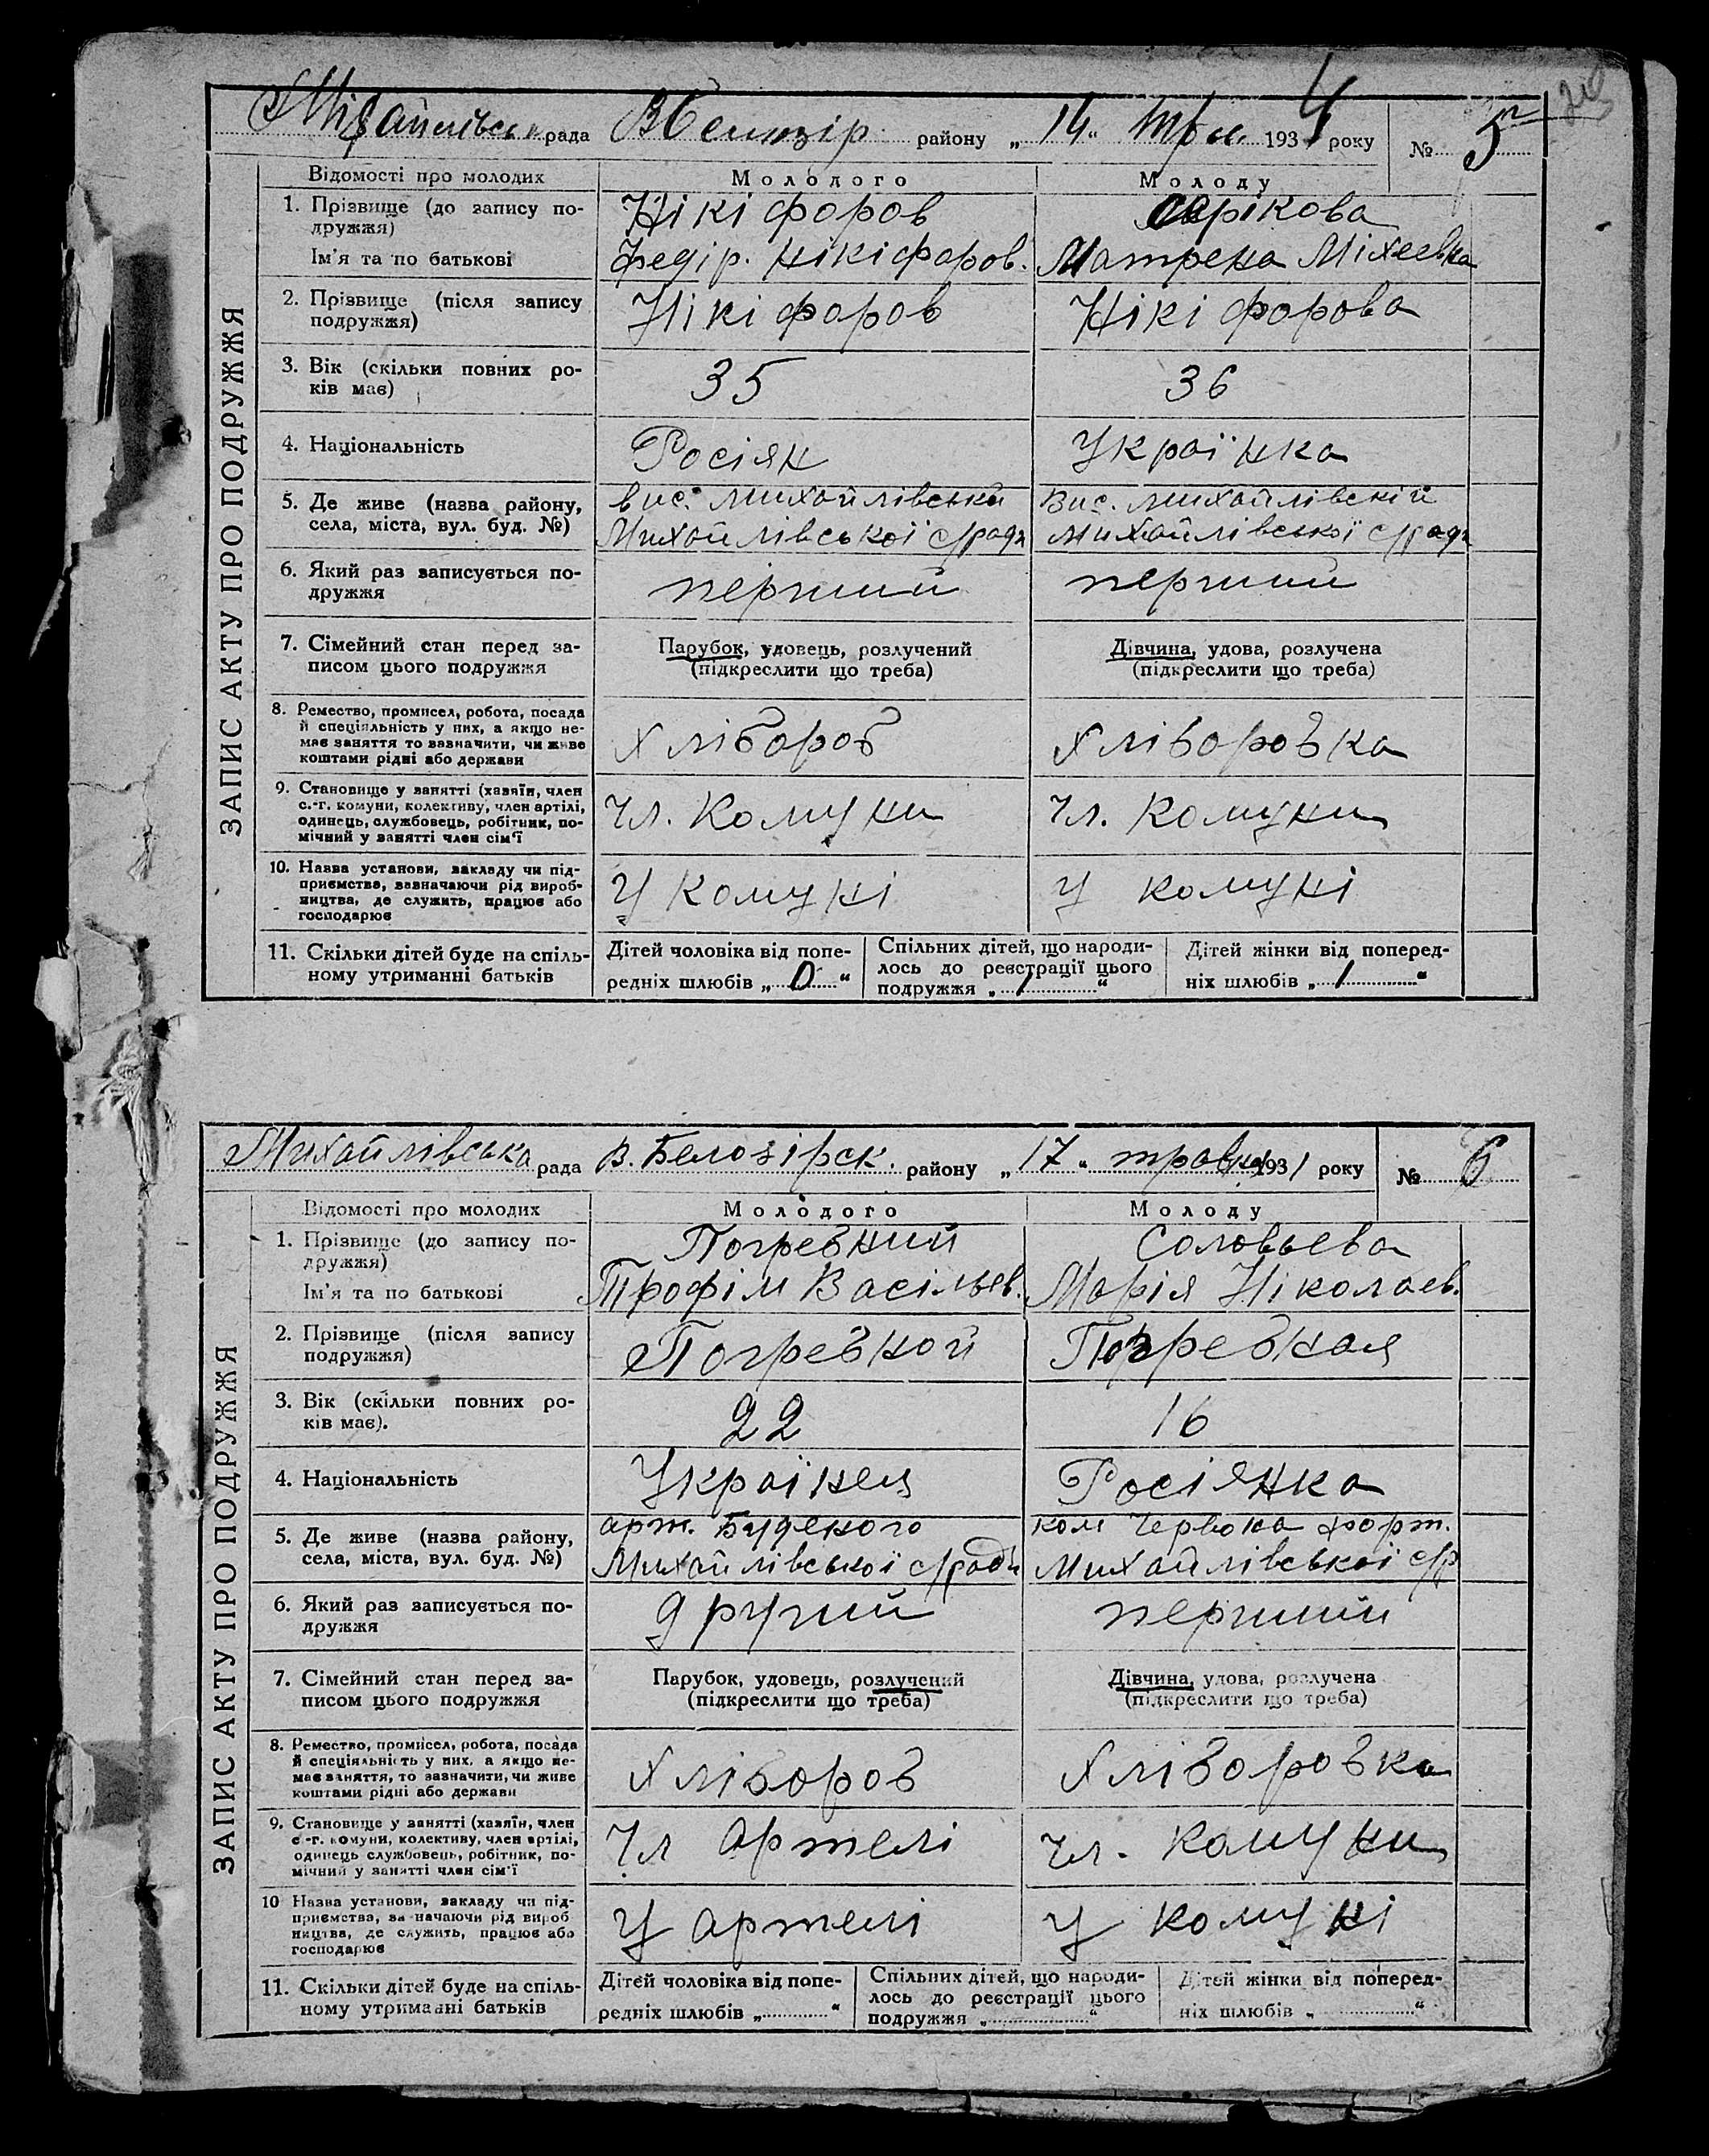 рада району „ 14 “ 193 року № 5
ЗАПИС АКТУ ПРО ПОДРУЖЖЯ
Відомості про молодих Молодого Молоду
1. Прізвище (до запису по- Нікіфоров
дружжя)
Ім'я та по батькові Федір. Нікіфоров. Матрена Міхеевна
2. Прізвище (після запису Нікіфоров Нікіфорова
подружжя)
3. Вік (скільки повних ро- 35 36
ків має)
4. Національність Росіян Українка
5. Де живе (назва району, вис. Михайлівськи Вис. Михайлівскій
села, міста, вул. буд. №) Михайлівської с/ради Михайлівської с/ради
6. Який раз записується по- перший перший
дружжя
7. Сімейний стан перед за- Парубок, удовець, розлучений Дівчина, удова, розлучена
писом цього подружжя (підкреслити що треба) (підкреслити що треба)
8. Ремество, промисел, робота, посада
й спеціяльність у них, а якщо не- Хлібороб Хліборобка
має заняття то зазначити, чи живе
коштами рідні або держави
9. Становище у занятті (хазяїн, член
с.-г. комуни, колективу, член артілі, Чл. Комуни Чл. Комуни
одинець, службовець, робітник, по-
мічний у занятті член сім'ї
10. Назва установи, закладу чи під-
приємства, зазначаючи рід вироб- У Комуні У комуні
ництва, де служить, працює або
господарює
11. Скільки дітей буде на спіль- Дітей чоловіка від попе- Спільних дітей, що народи- Дітей жінки від поперед-
ному утриманні батьків редніх шлюбів „ 0 “ лось до реєстрації цього ніх шлюбів „ 1 “
подружжя „ 1 “
Михайлівська рада В. Белозірск. району „ 17 “ травня 1931 року № 6
ЗАПИС АКТУ ПРО ПОДРУЖЖЯ
Відомості про молодих Молодого Молоду
1. Прізвище (до запису по- Погребний Соловьева
дружжя)
Ім'я та по батькові Трофім Васільев. Марія Ніколаев.
2. Прізвище (після запису Погребной Погребная
подружжя)
3. Вік (скільки повних ро- 22 16
ків має).
4. Національність Українец Росіянка
5. Де живе (назва району, арт. Буденого ком Червона
села, міста, вул. буд. №) Михайлівської с/ради Михайлівської с/р
6. Який раз записується по- другий перший
дружжя
7. Сімейний стан перед за- Парубок, удовець, розлучений Дівчина, удова, розлучена
писом цього подружжя (підкреслити що треба) (підкреслити що треба)
8. Ремество, промисел, робота, посада
й спеціяльність у них, а якщо не- Хлібороб Хліборобка
має заняття, то зазначити, чи живе
коштами рідні або держави
9. Становище у занятті (хазяїн, член
с-г. комуни, колективу, член артілі, Чл Артелі Чл. Комуни
одинець службовець, робітник, по-
мічний у занятті член сім'ї
10 Назва установи, закладу чи під-
приємства, зазначаючи рід вироб У артелі У комуні
ництва, де служить, працює або
господарює
11. Скільки дітей буде на спіль- Дітей чоловіка від попе- Спільних дітей, що народи- Дітей жінки від поперед-
ному утриманні батьків редніх шлюбів „ “ лось до реєстрації цього ніх шлюбів „ “
подружжя „ “